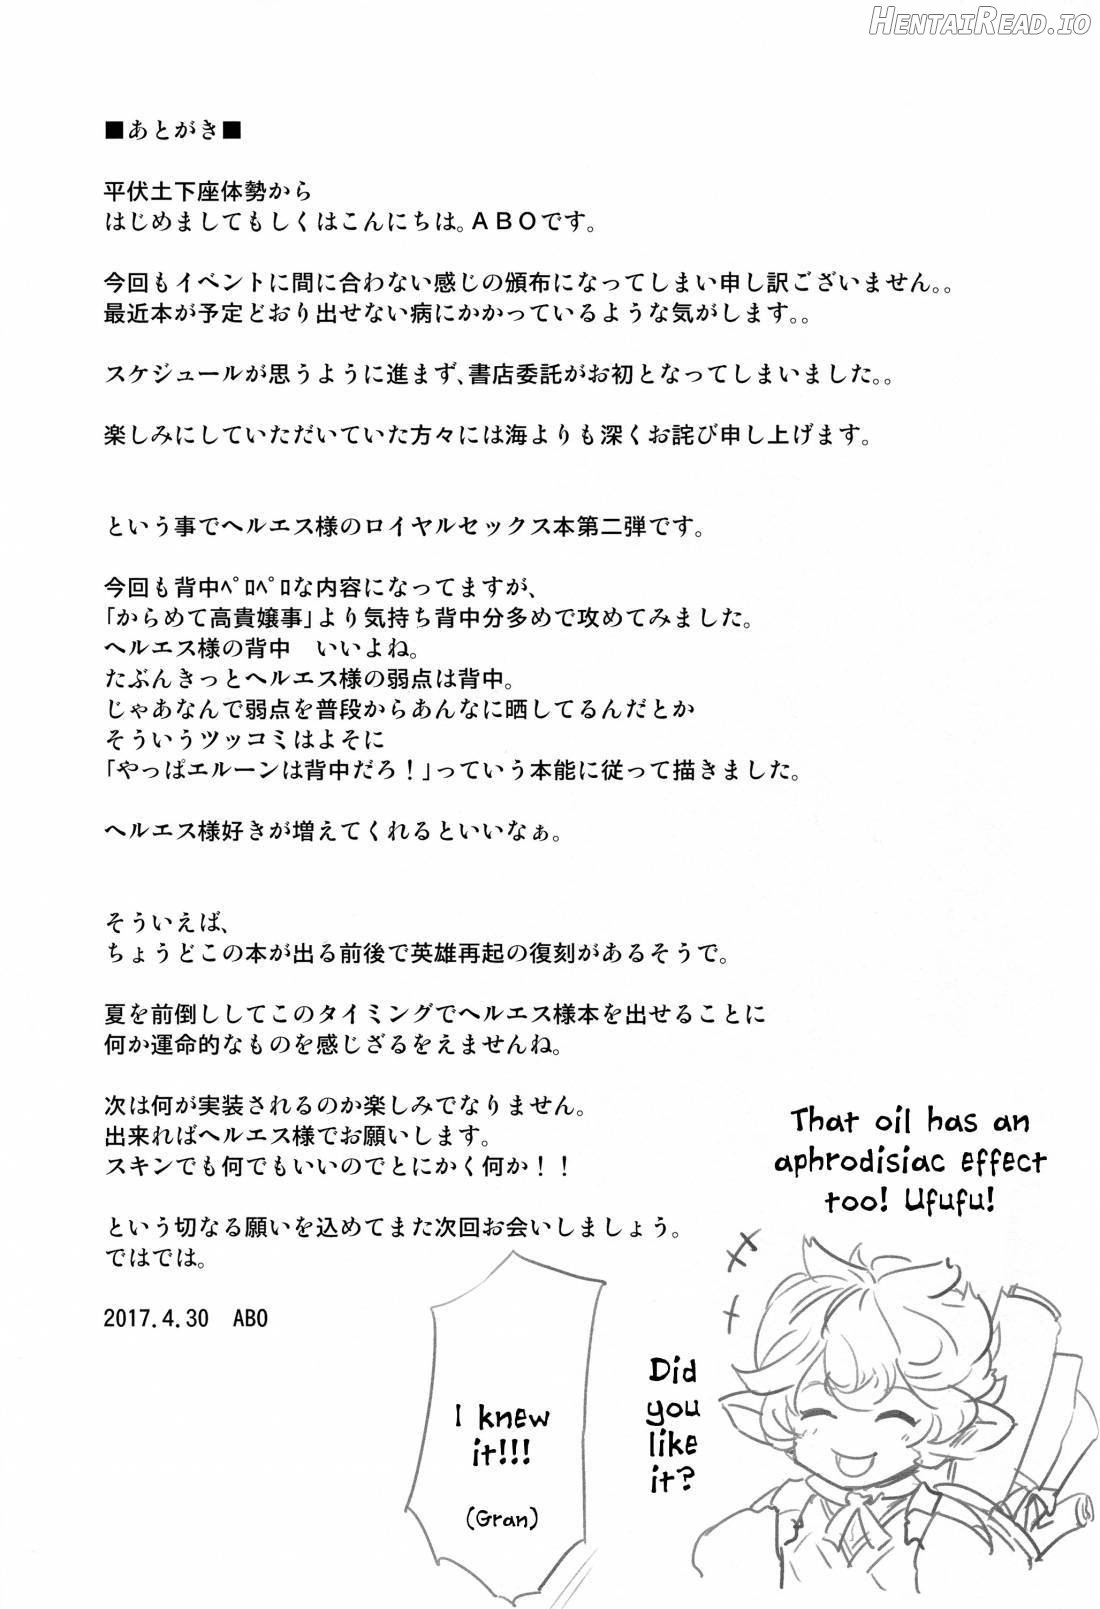 HENTAIREAD.IO
■あとがき■
平伏土下座体勢から
はじめましてもしくはこんにちは。ABOです。
今回もイベントに間に合わない感じの頒布になってしまい申し訳ございません。。
最近本が予定どおり出せない病にかかっているような気がします。。
スケジュールが思うように進まず、書店委託がお初となってしまいました。。
楽しみにしていただいていた方々には海よりも深くお詫び申し上げます。
という事でヘルエス様のロイヤルセックス本第二弾です。
今回も背中ﾍﾟﾛﾍﾟﾛな内容になってますが、
「からめて高貴嬢事」より気持ち背中分多めで攻めてみました。
ヘルエス様の背中　いいよね。
たぶんきっとヘルエス様の弱点は背中。
じゃあなんで弱点を普段からあんなに晒してるんだとか
そういうツッコミはよそに
「やっぱエルーンは背中だろ！」っていう本能に従って描きました。
ヘルエス様好きが増えてくれるといいなぁ。
そういえば、
ちょうどこの本が出る前後で英雄再起の復刻があるそうで。
夏を前倒ししてこのタイミングでヘルエス様本を出せることに
何か運命的なものを感じざるをえませんね。
次は何が実装されるのか楽しみでなりません。
出来ればヘルエス様でお願いします。
スキンでも何でもいいのでとにかく何か！！
という切なる願いを込めてまた次回お会いしましょう。
ではでは。
2017.4.30　ABO
That oil has an
aphrodisiac effect
too! Ufufu!
Did
you
like
it?
I knew
it!!!
(Gran)